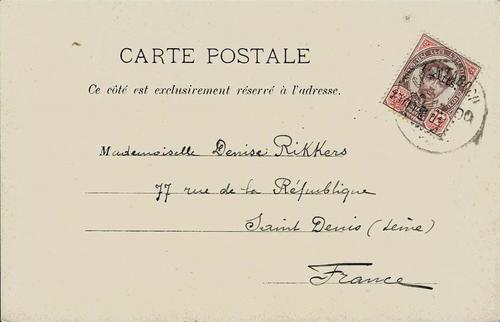 CARTE POSTALE
Ce côté est exclusivement réservé à l'adresse.
Mademoiselle Denise Rikkers
77 rue de la République
Saint Denis (Seine)
France